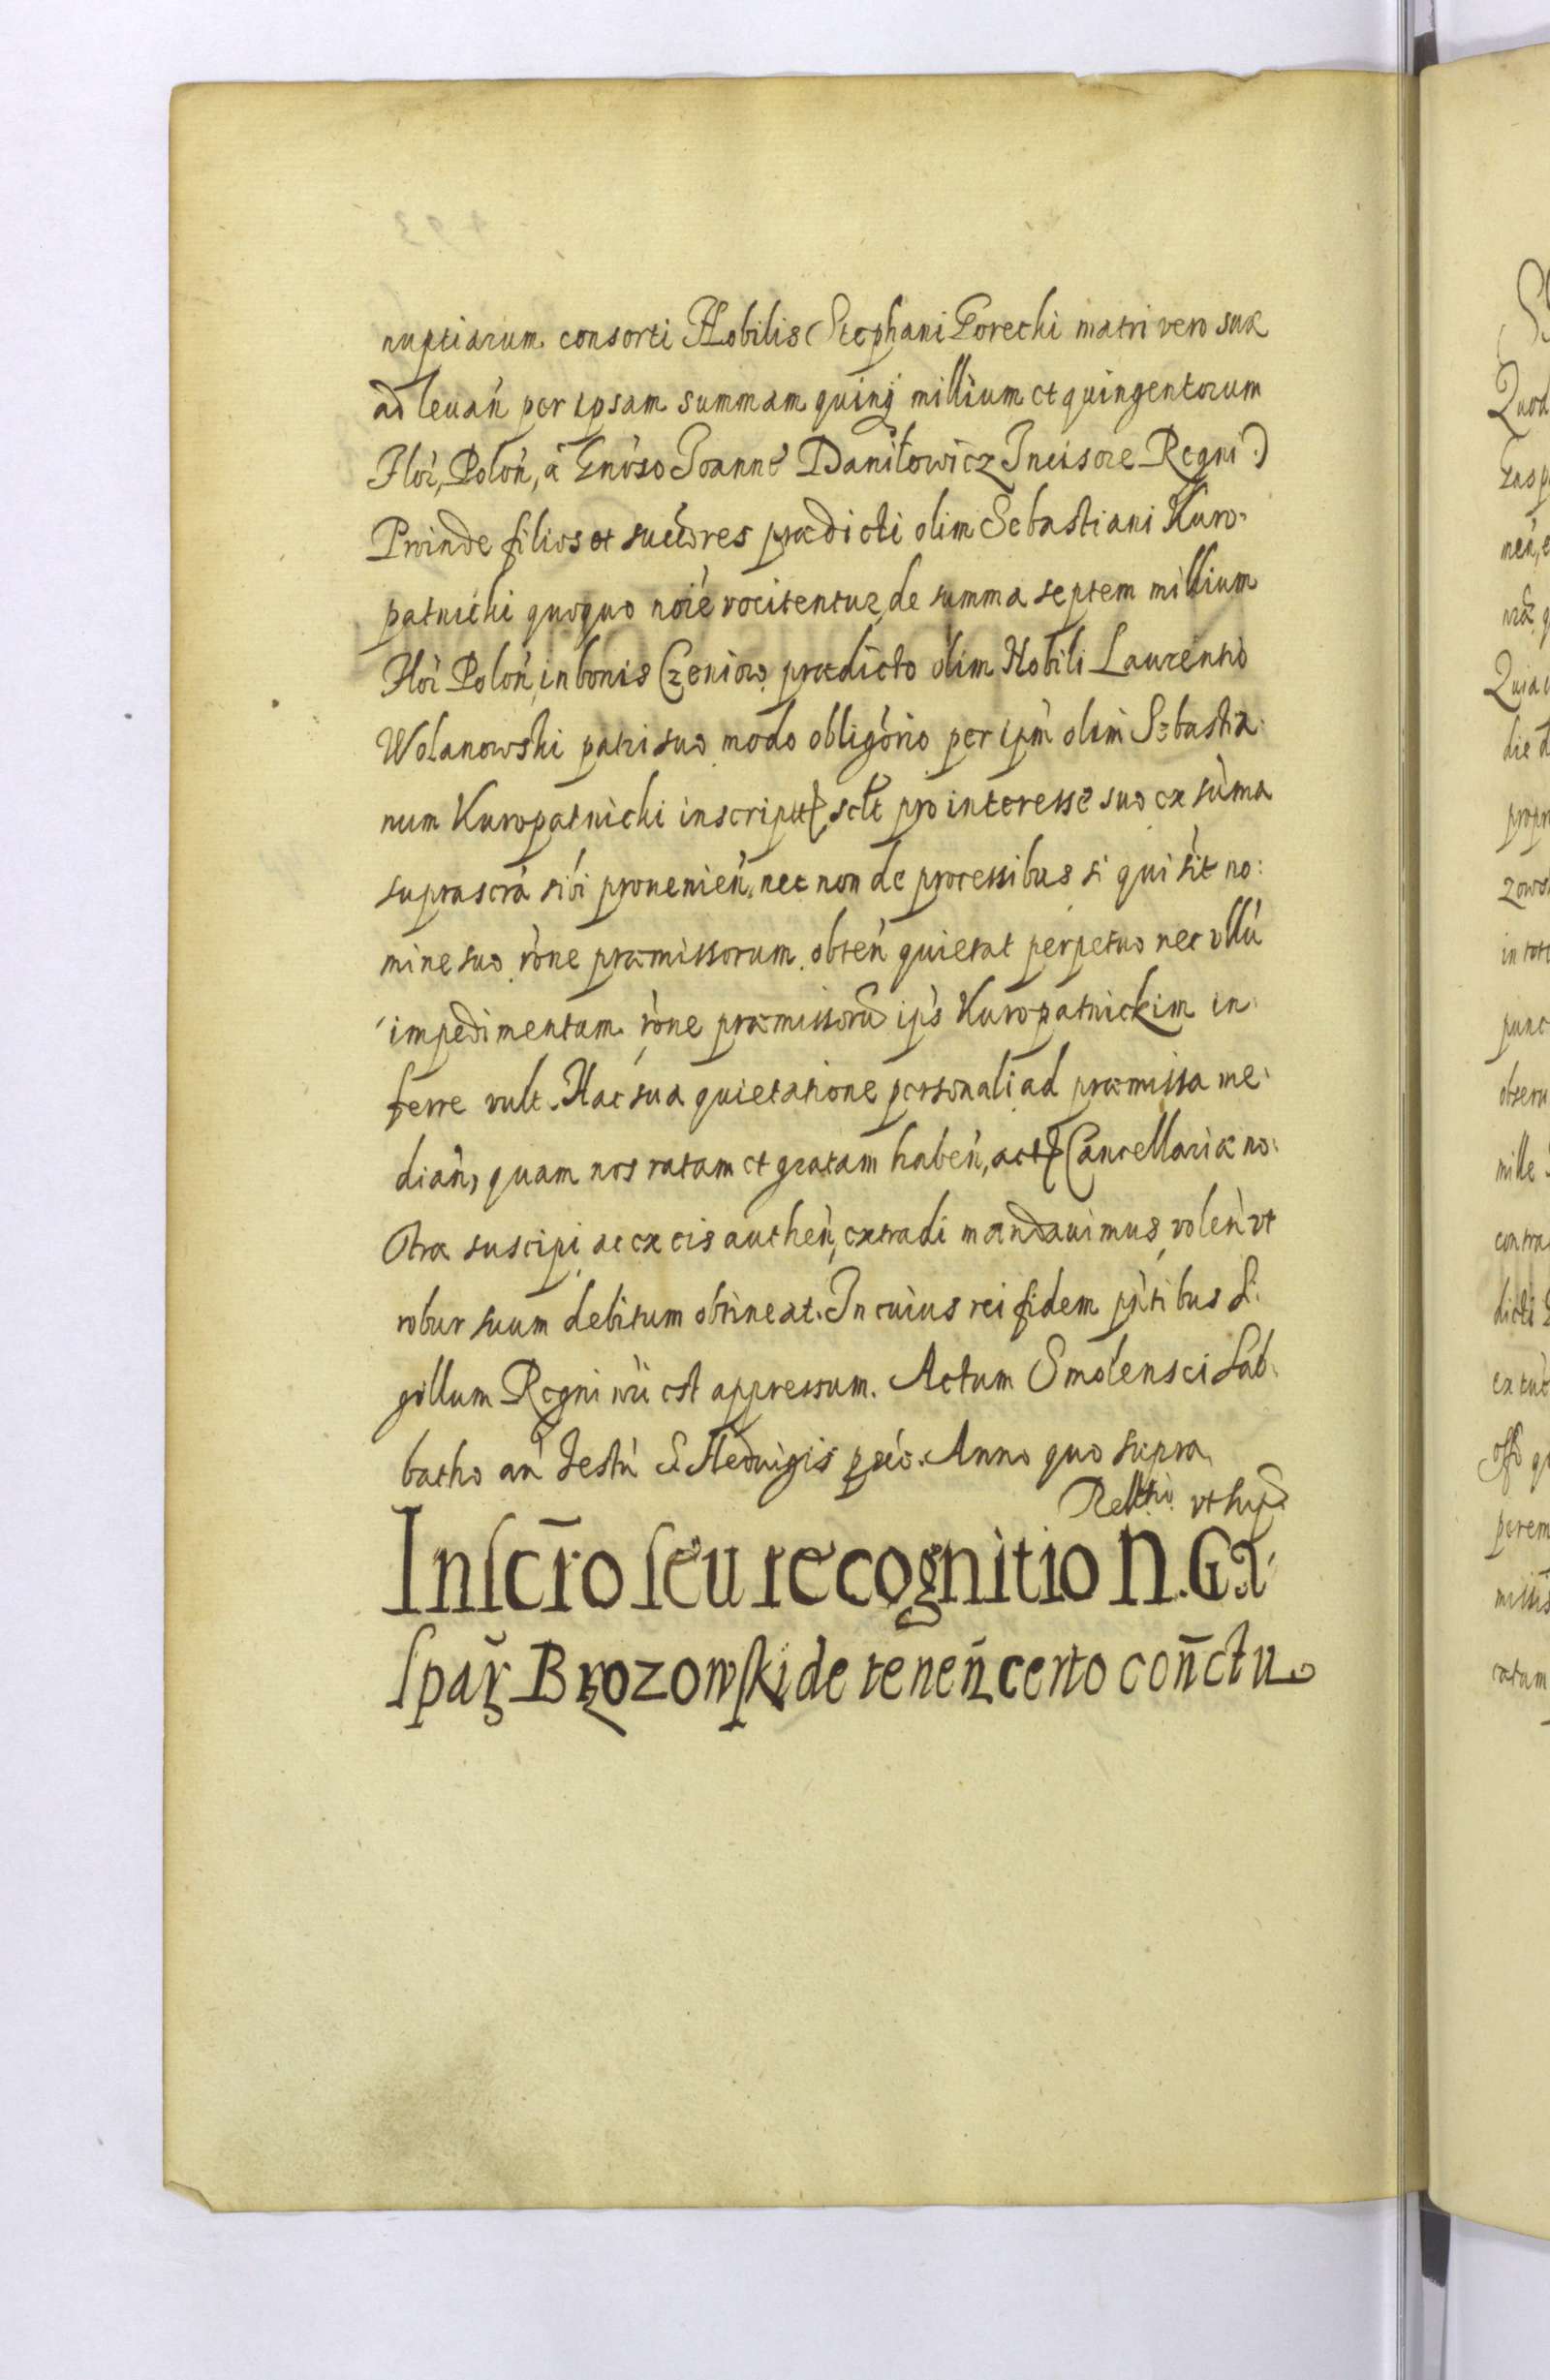 nuptiarum consorti Nobilis Stephani Gorecki matri vero suæ
ad leuań per ipsam summam quinq millium et quingentorum
Flor, Polon, á Gnoso Joanne Daniłowicz Incisore Regni.)
Proinde filios et succores prædicti olim Sebastiani Kuro-
patnicki quoquo noie vocitentur, de summa septem millium
Flor Polon, in bonis Czeniow prædicto olim Nobili Laurentio
Wolanowski patri suo modo obligorio per ipm olim Sebastia-
num Kuropatnicki inscript, sclt pro interesse suo ex suma
suprascra sibi prouenień, nec non de processibus si qui sit no:
mine suo rone præmissorum obteń quietat perpetuo nec vllu
impedimentum rone præmissoru ips Kuropatnickim in-
ferre vult. Hac sua quietatione personali ad præmissa me-
diań, quam nos ratam et gratam habeń, act Cancellariæ no:
stræ suscipi ac ex eis autheń, extradi mandauimus, voleń vt
robur suum debitum obtineat. In cuius rei fidem pntibus Si-
gillum Regni nri est appressum. Actum Smolensci Sab-
batho an festu S. Heduigis pxio. Anno quo supra
Rellatio vt supra
Inscro seu recognitio N. Ga-
spar Brzozowski de teneń certo conctu